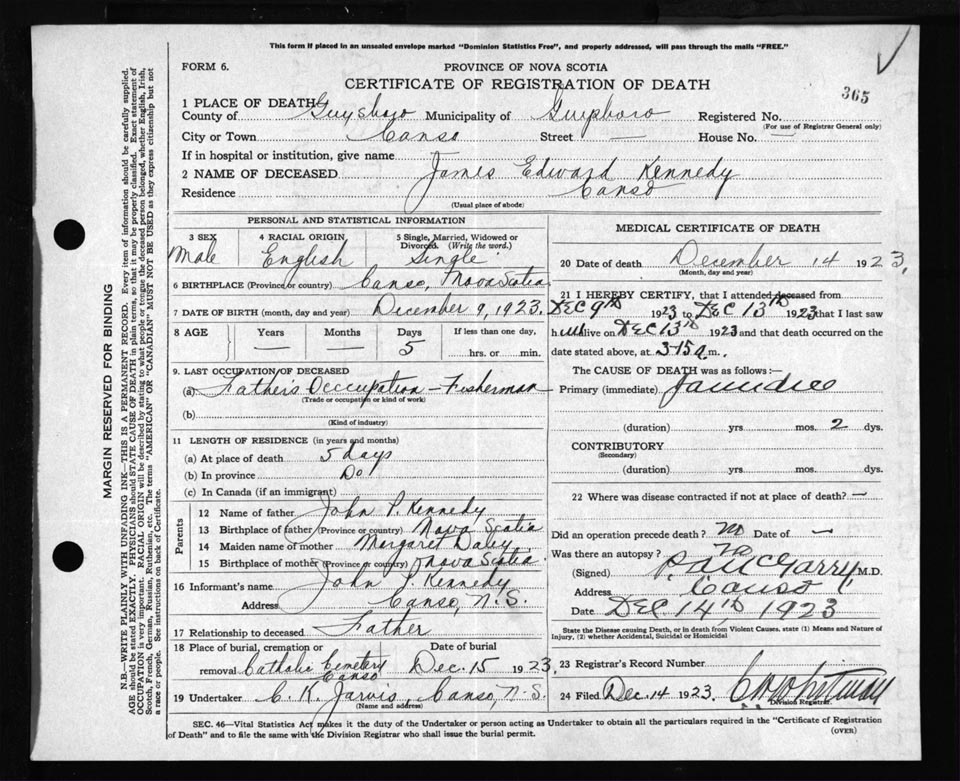 This form if placed in an unsealed envelope marked "Dominion Statistics Free", and properly addressed, will pass through the mails "FREE."
FORM 6.
PROVINCE OF NOVA SCOTIA
CERTIFICATE OF REGISTRATION OF DEATH
365
1 PLACE OF DEATH
County of Guysboro Municipality of Guysboro Registered No.
(For use of Registrar General only)
City or Town Canso Street — House No. —
If in hospital or institution, give name
2 NAME OF DECEASED James Edward Kennedy
Residence Canso
(Usual place of abode)
PERSONAL AND STATISTICAL INFORMATION
3 SEX 4 RACIAL ORIGIN 5 Single, Married, Widowed or Divorced. (Write the word.)
Male English Single
6 BIRTHPLACE (Province or country) Canso, Nova Scotia
7 DATE OF BIRTH (month, day and year) December 9, 1923.
8 AGE Years Months Days If less than one day,
— — 5 hrs. or min.
9. LAST OCCUPATION OF DECEASED
(a) Father's Occcupation – Fisherman
(Trade or occupation or kind of work)
(b)
(Kind of industry)
11 LENGTH OF RESIDENCE (in years and months)
(a) At place of death 5 days
(b) In province Do
(c) In Canada (if an immigrant)
Parents
12 Name of father John P. Kennedy
13 Birthplace of father (Province or country) Nova Scotia
14 Maiden name of mother Margaret Daley
15 Birthplace of mother (Province or country) Nova Scotia
16 Informant's name John P. Kennedy
Address Canso, N.S.
17 Relationship to deceased Father
18 Place of burial, cremation or removal Date of burial
Catholic Cemetery Canso Dec. 15 1923.
19 Undertaker C. K. Jarvis, Canso, N.S.
(Name and address)
MEDICAL CERTIFICATE OF DEATH
20 Date of death December 14 1923.
(Month, day and year)
21 I HEREBY CERTIFY, that I attended deceased from
DEC 9th 1923 to DEC 13th 1923 that I last saw
h alive on DEC 13th 1923 and that death occurred on
date stated above, at 3-15 a.m.
The CAUSE OF DEATH was as follows:
Primary (immediate) Jaundice
(duration) yrs. mos. 2 dys.
CONTRIBUTORY
(Secondary)
(duration) yrs. mos. dys.
22 Where was disease contracted if not at place of death? —
Did an operation precede death? no Date of —
Was there an autopsy? no
(Signed) McGarry M.D.
Address Canso
Date DEC 14th, 1923
State the Disease causing Death, or in death from Violent Causes, state (1) Means and Nature of Injury, (2) whether Accidental, Suicidal or Homicidal
23 Registrar's Record Number
24 Filed Dec. 14 1923. Whitman
Division Registrar.
SEC. 46—Vital Statistics Act makes it the duty of the Undertaker or person acting as Undertaker to obtain all the particulars required in the "Certificate of Registration
of Death" and to file the same with the Division Registrar who shall issue the burial permit.
(OVER)
MARGIN RESERVED FOR BINDING
N.B.—WRITE PLAINLY WITH UNFADING INK—THIS IS A PERMANENT RECORD. Every item of information should be carefully supplied.
AGE should be stated EXACTLY. PHYSICIANS should STATE CAUSE OF DEATH in plain terms, so that it may be properly classified. Exact statement of
OCCUPATION is very important. RACIAL ORIGIN will be described by stating to what people or tongue the deceased person belonged, whether English, Irish,
Scotch, French, German, Russian, Ruthenian, etc. The terms "AMERICAN" or "CANADIAN" MUST NOT BE USED as they express citizenship but not
a race or people. See instructions on back of Certificate.